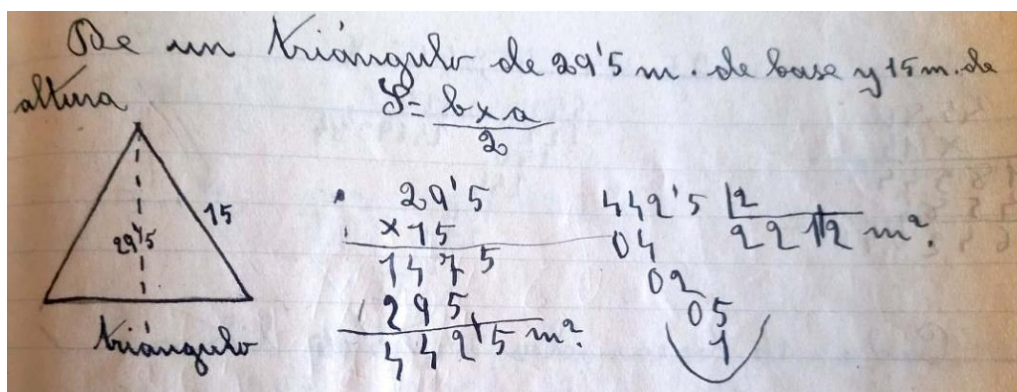 De un triángulo de 29'5 m. de base y 15 m. de
altura
S= b x a
2
29'5
15
triángulo
29'5
x15
1475
295
442'5 m².
442'5 2
04 221'2 m².
02
05
1